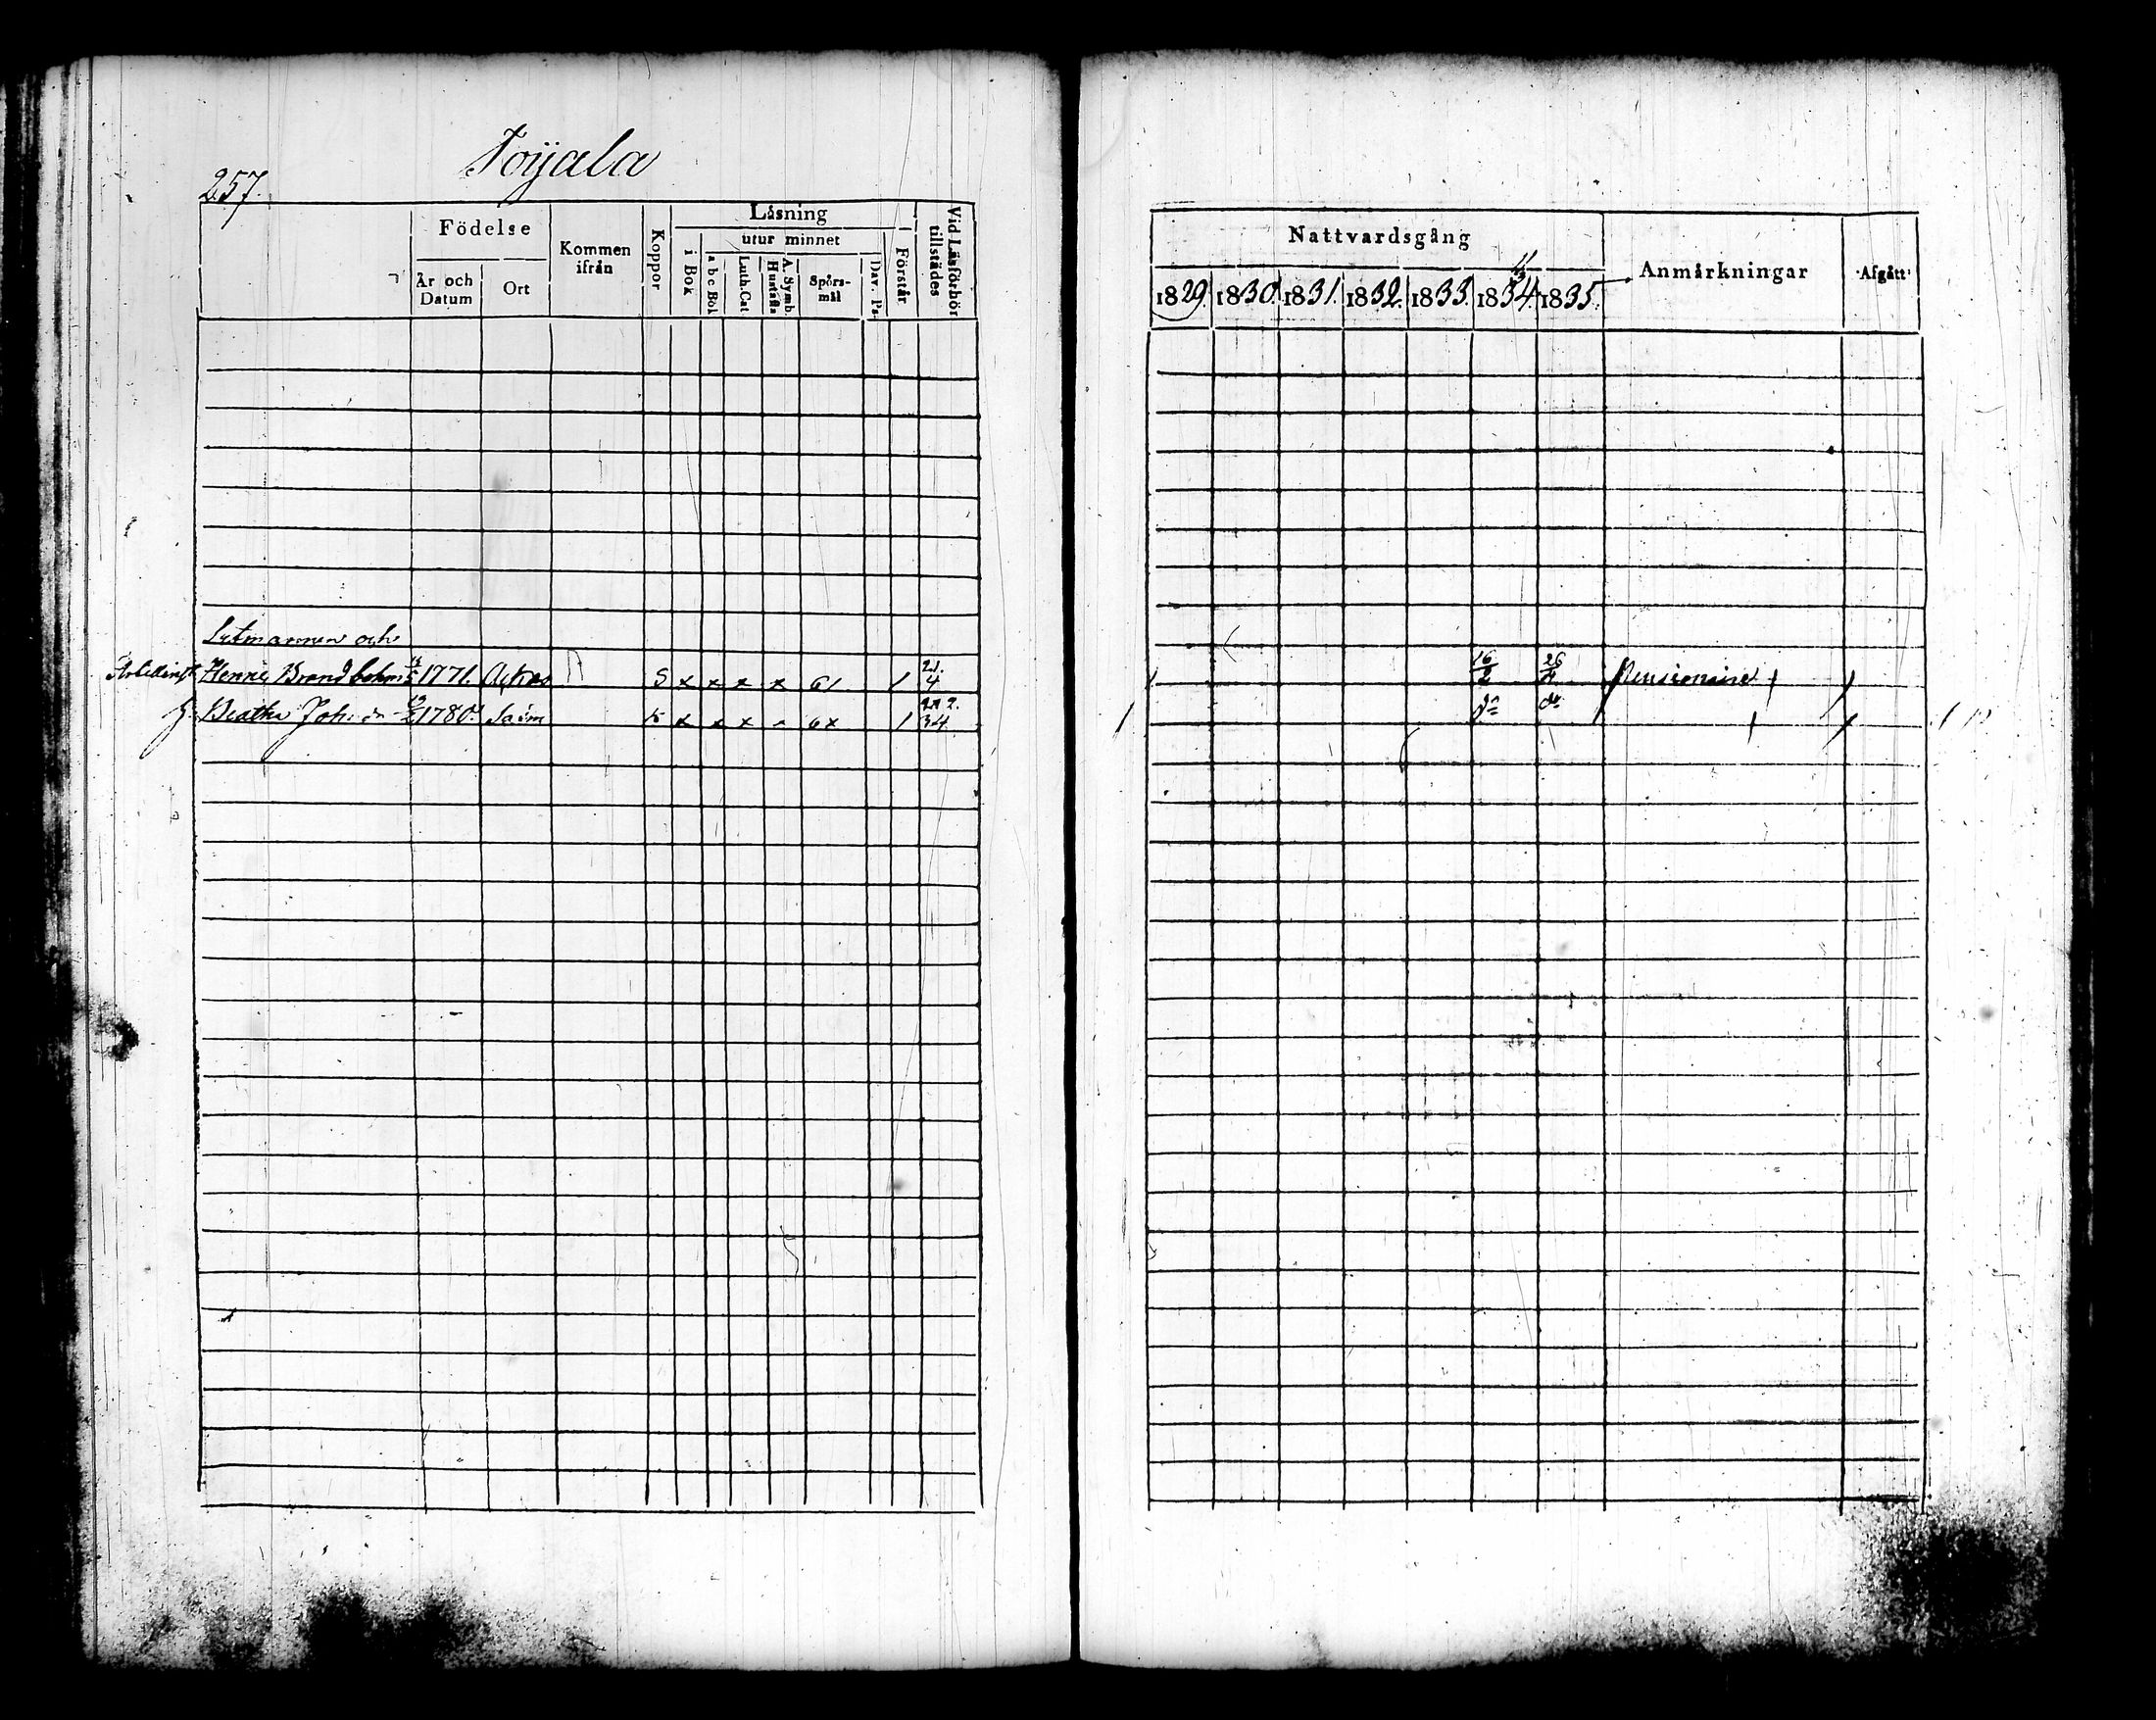 257.
Toijala
Födelse
Kommen ifrån
Koppor
Läsning
utur minnet
År och Datum
Ort
i Bok
a b c Bok
Luth. Cat.
A. Symb. Hustafla
Spörsmål
Dav. Ps.
Förstår
Vid Läsförhör tillstädes
Nattvardsgång
Anmärkningar
Afgått
1829. 1830. 1831. 1832. 1833. 1834. 1835.
och
Henric 1771. S x x x x 61 1 21. 4 16 26 Pensionine
Beatha Joh. 1780. x x x 6x 1 34 do do